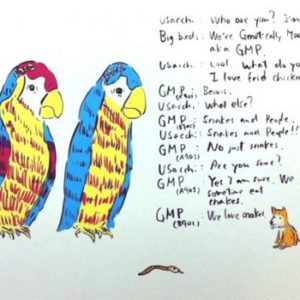 Usacchi: Who are you? I'm
Big birds: We're Genetically Mod
aka GMP.
Usacchi: Cool. What do you
I love frid chicken
GMP: Beans.
Usacchi: What else?
GMP: Snakes and People.
Usacchi: Snakes and People!!
GMP: No just snakes.
Usacchi: Are you sure?
GMP: Yes I am sure. We
sometime eat
snakes.
GMP: We love snakes.